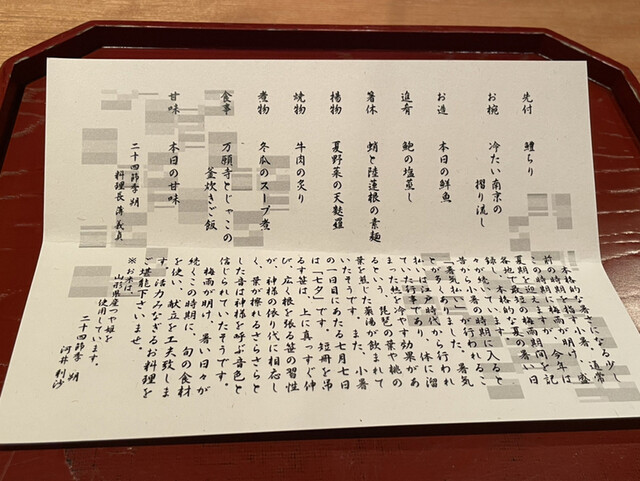 先付　鱧ちり
お椀　冷たい南京の
摺り流し
お造　本日の鮮魚
追肴　鮑の塩蒸し
箸休　蛸と陸蓮根の素麺
揚物　夏野菜の天麩羅
焼物　牛肉の炙り
煮物　冬瓜のスープ煮
食事　万願寺とじゃこの
釜炊きご飯
甘味　本日の甘味
二十四節季 朔
料理長 澤義貞
本格的な暑さになる少し
前の時期を梅雨が明け、通常
この時期に梅雨が明け、盛
夏期を迎えますが、今年は
各地で最短の梅雨期間を記
録し、本格的な夏の暑い日
々が続いています。
小暑の時期に入ると
昔から「暑気払い」が行われるこ
とが多くありました。暑気
払いは江戸時代から行われ
ていた行事であり、体に溜
まった熱を冷やす効果があ
るという、琵琶の葉や桃の
葉を煎じた薬湯が飲まれて
いたそうです。また、小暑
の一日目にあたる七月七日
は「七夕」です。短冊を吊
るす笹は、上に真っすぐ伸
び、広く根を張る笹の習性
が、神様の依り代に相応し
く、葉が擦れるさらさらと
した音は神様を呼ぶ音色と
信じられていたそうです。
梅雨が明け、暑い日々が
続くこの時期に、旬の食材
を使い、献立を工夫致しま
す。活力みなぎるお料理を
ご堪能下さいませ。
※お米は、
山形県産つや姫を
使用しています。
二十四節季 朔
河井 利沙